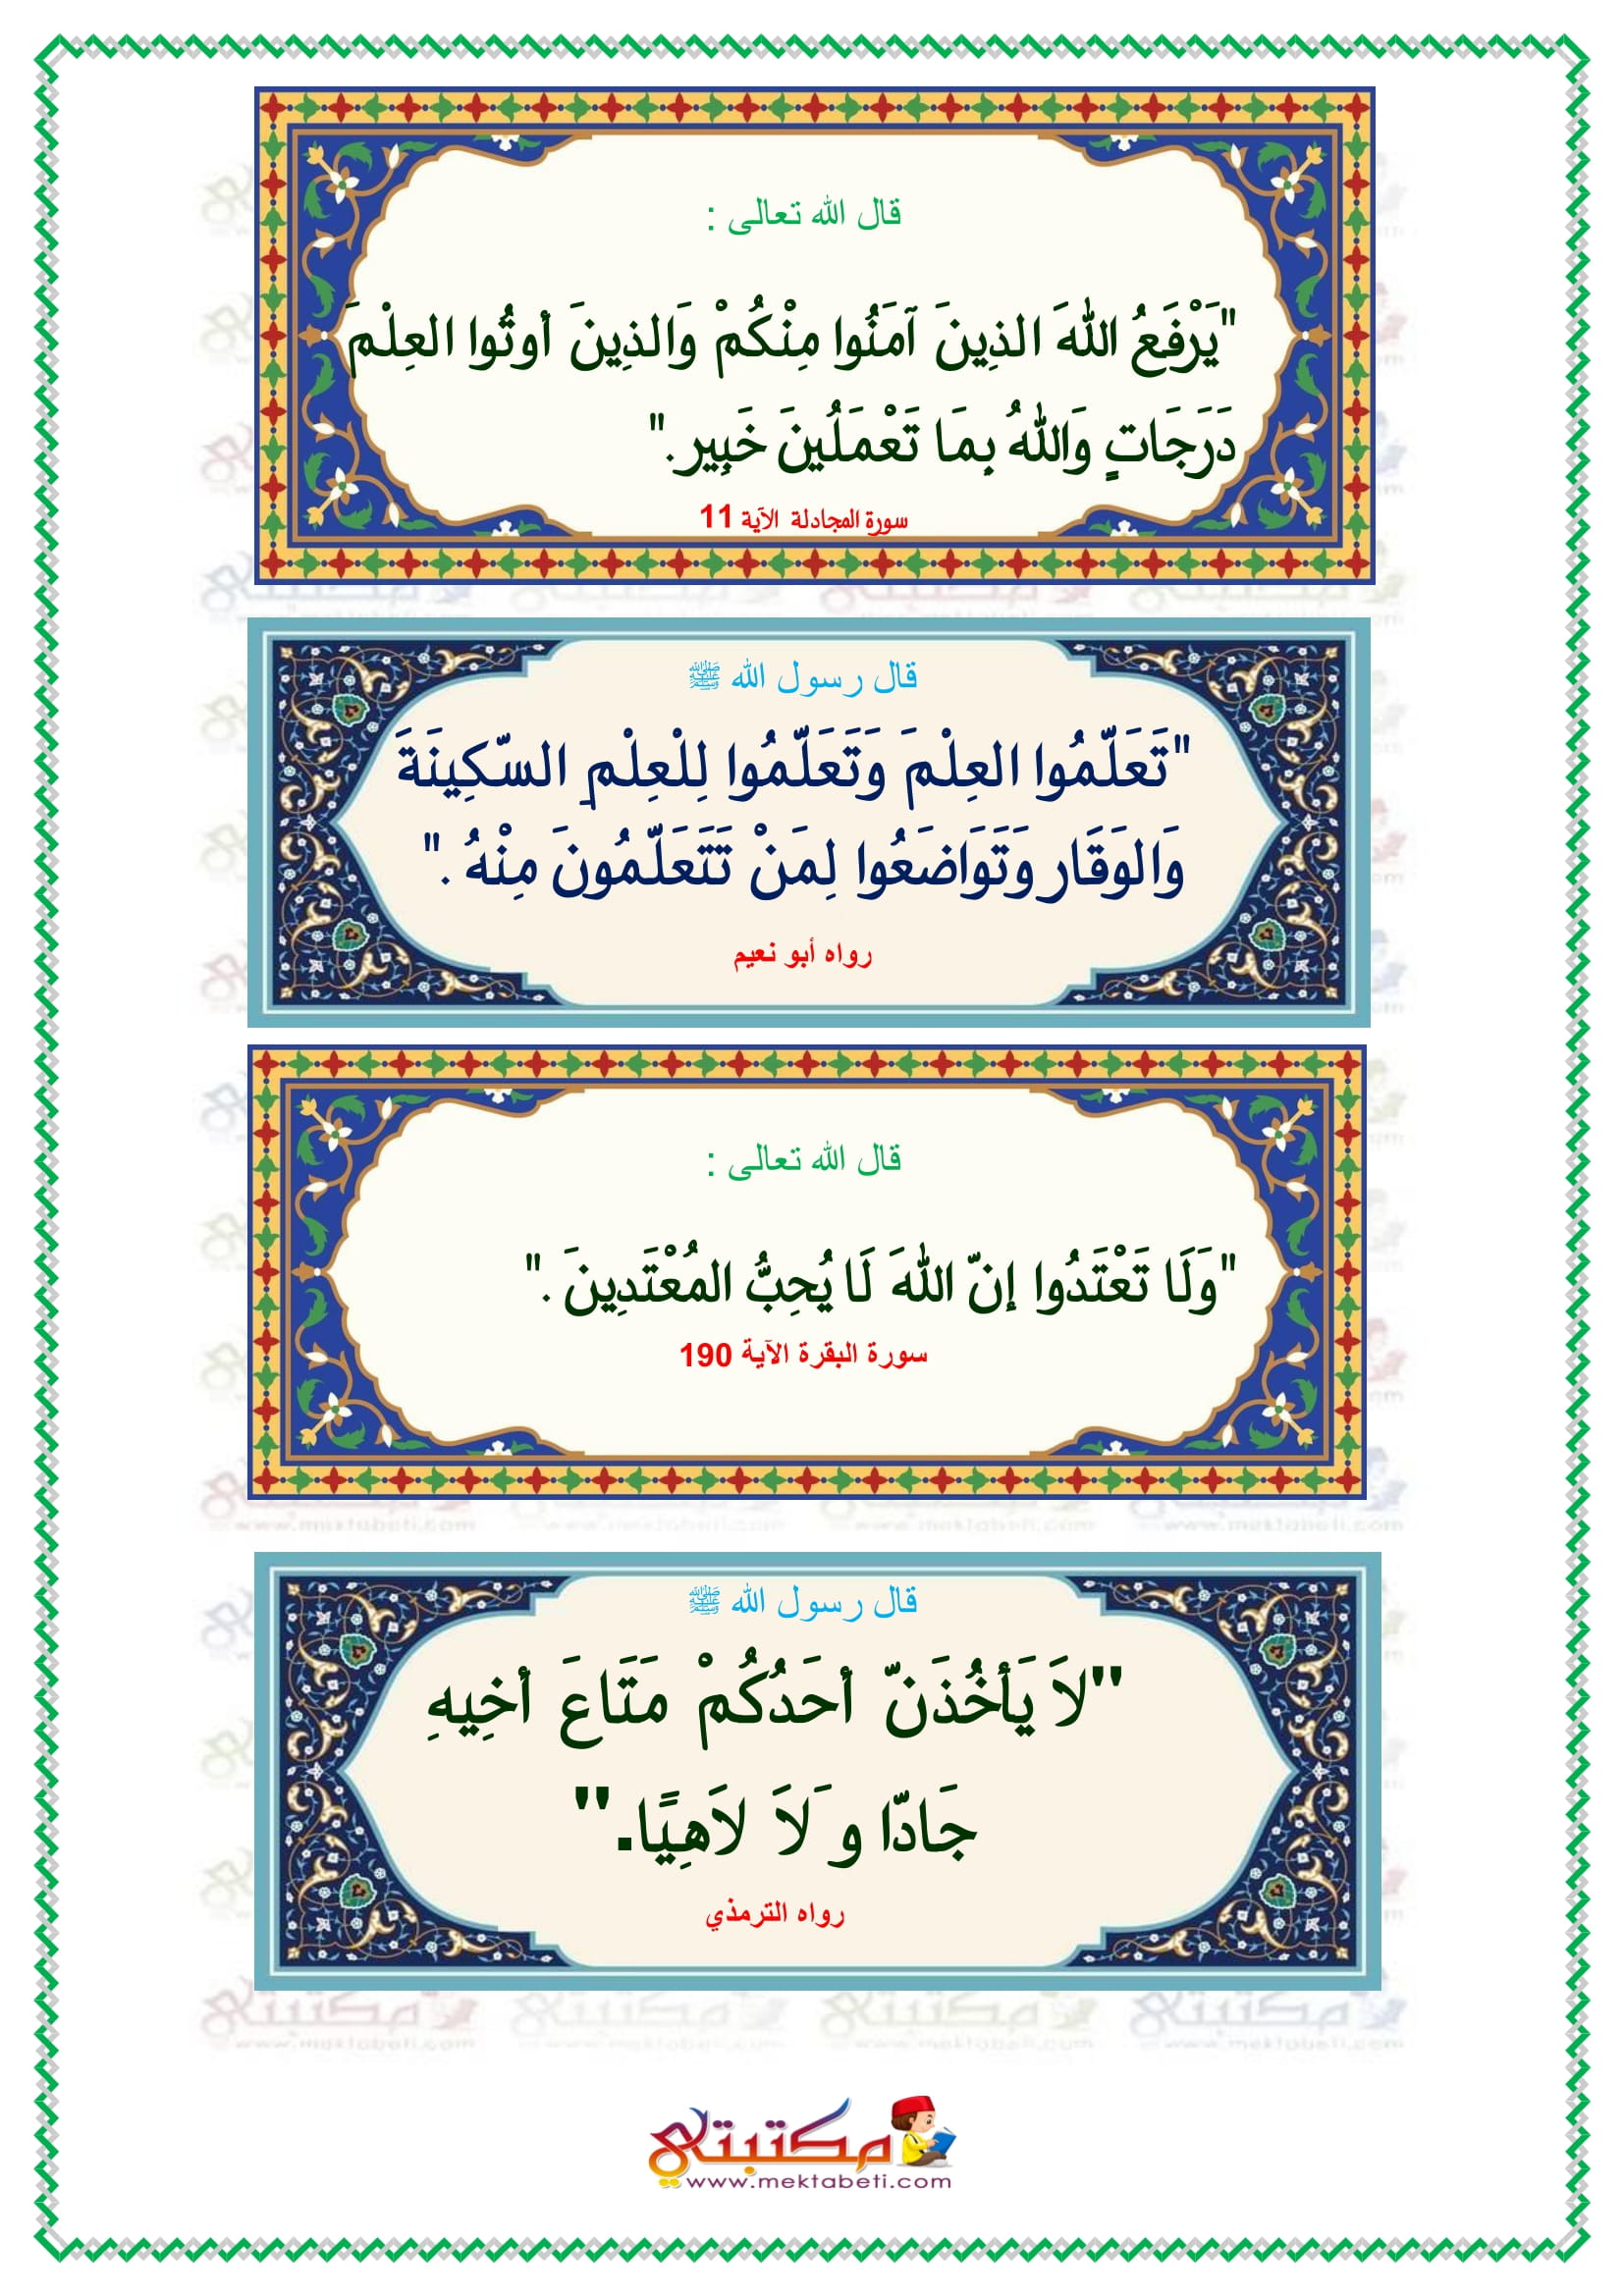 قال الله تعالى :
"يَرْفَعُ اللهَ الذِينَ آمَنُوا مِنْكُمْ وَالذِينَ أوتُوا العِلْمَ
دَرَجَاتٍ وَاللهُ بِمَا تَعْمَلُينَ خَبِير."
سورة المجادلة الآية 11
قال رسول الله ﷺ
"تَعَلّمُوا العِلْمَ وَتَعَلّمُوا لِلْعِلْمِ السّكِينَةَ
وَالوَقَار وَتَوَاضَعُوا لِمَنْ تَتَعَلّمُونَ مِنْهُ ."
رواه أبو نعيم
قال الله تعالى :
"وَلَا تَعْتَدُوا إنّ اللهَ لَا يُحِبُّ المُعْتَدِينَ ."
سورة البقرة الآية 190
قال رسول الله ﷺ
"لاَ يَأخُذَنّ أحَدُكُمْ مَتَاعَ أخِيهِ
جَادّا و َلاَ لاَهِيًا."
رواه الترمذي
مكتبتي
www.mektabeti.com